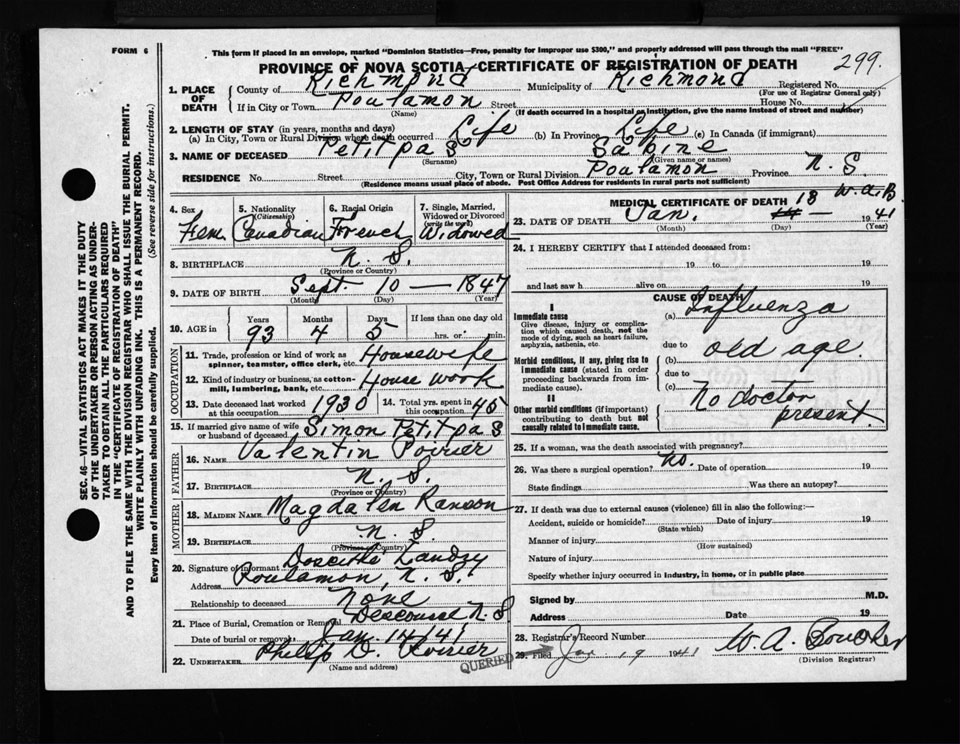 FORM 6
This form if placed in an envelope, marked "Dominion Statistics—Free, penalty for improper use $300," and properly addressed will pass through the mail "FREE"
PROVINCE OF NOVA SCOTIA—CERTIFICATE OF REGISTRATION OF DEATH
299.
1. PLACE OF DEATH
County of Richmond Municipality of Richmond Registered No.
(For use of Registrar General only)
If in City or Town Poulamon Street House No.
(Name) (If death occurred in a hospital or institution, give the name instead of street and number)
2. LENGTH OF STAY (in years, months and days)
(a) In City, Town or Rural Division where death occurred Life (b) In Province Life (c) In Canada (if immigrant)
3. NAME OF DECEASED Petitpas Sabine
(Surname) (Given name or names)
RESIDENCE No. Street City, Town or Rural Division Poulamon Province N. S.
(Residence means usual place of abode. Post Office Address for residents in rural parts not sufficient)
4. Sex Fem.
5. Nationality (Citizenship) Canadian
6. Racial Origin French
7. Single, Married, Widowed or Divorced (write the word) Widowed
8. BIRTHPLACE N. S.
(Province or Country)
9. DATE OF BIRTH Sept. 10 — 1847
(Month) (Day) (Year)
10. AGE in Years 93 Months 4 Days 5 If less than one day old hrs. or min.
OCCUPATION
11. Trade, profession or kind of work as spinner, teamster, office clerk, etc. Housewife
12. Kind of industry or business, as cotton-mill, lumbering, bank, etc. House work
13. Date deceased last worked at this occupation 1930
14. Total yrs. spent in this occupation 45
15. If married give name of wife or husband of deceased Simon Petitpas
FATHER
16. NAME Valentin Poirier
17. BIRTHPLACE N. S.
(Province or Country)
MOTHER
18. MAIDEN NAME Magdalen Ranson
19. BIRTHPLACE N. S.
(Province or Country)
20. Signature of informant Landry
Address Poulamon, N. S.
Relationship to deceased None
21. Place of Burial, Cremation or Removal Descousse N. S
Date of burial or removal Jan. 14/41
22. UNDERTAKER Philip D. Poirier
(Name and address)
MEDICAL CERTIFICATE OF DEATH
W. a. B.
23. DATE OF DEATH Jan. 13 — 1941
(Month) (Day) (Year)
24. I HEREBY CERTIFY that I attended deceased from:
19 to 19
and last saw h alive on 19
CAUSE OF DEATH
I
Immediate cause
Give disease, injury or complication which caused death, not the mode of dying, such as heart failure, asphyxia, asthenia, etc.
(a) Influenza
due to
Morbid conditions, if any, giving rise to immediate cause (stated in order proceeding backwards from immediate cause).
(b) old age
due to
(c)
II
Other morbid conditions (if important) contributing to death but not causally related to immediate cause.
No doctor
present.
25. If a woman, was the death associated with pregnancy?
26. Was there a surgical operation? No. Date of operation 19
State findings Was there an autopsy?
27. If death was due to external causes (violence) fill in also the following:—
Accident, suicide or homicide? Date of injury 19
(State which)
Manner of injury
(How sustained)
Nature of injury
Specify whether injury occurred in industry, in home, or in public place
Signed by M.D.
Address Date 19
28. Registrar's Record Number
29. Filed Jan 19 1941 W. A. Boucher
(Division Registrar)
QUERIED
SEC. 46—VITAL STATISTICS ACT MAKES IT THE DUTY
OF THE UNDERTAKER OR PERSON ACTING AS UNDER-
TAKER TO OBTAIN ALL THE PARTICULARS REQUIRED
IN THE "CERTIFICATE OF REGISTRATION OF DEATH"
AND TO FILE THE SAME WITH THE DIVISION REGISTRAR WHO SHALL ISSUE THE BURIAL PERMIT.
WRITE PLAINLY WITH UNFADING INK. THIS IS A PERMANENT RECORD.
Every item of information should be carefully supplied. (See reverse side for instructions.)